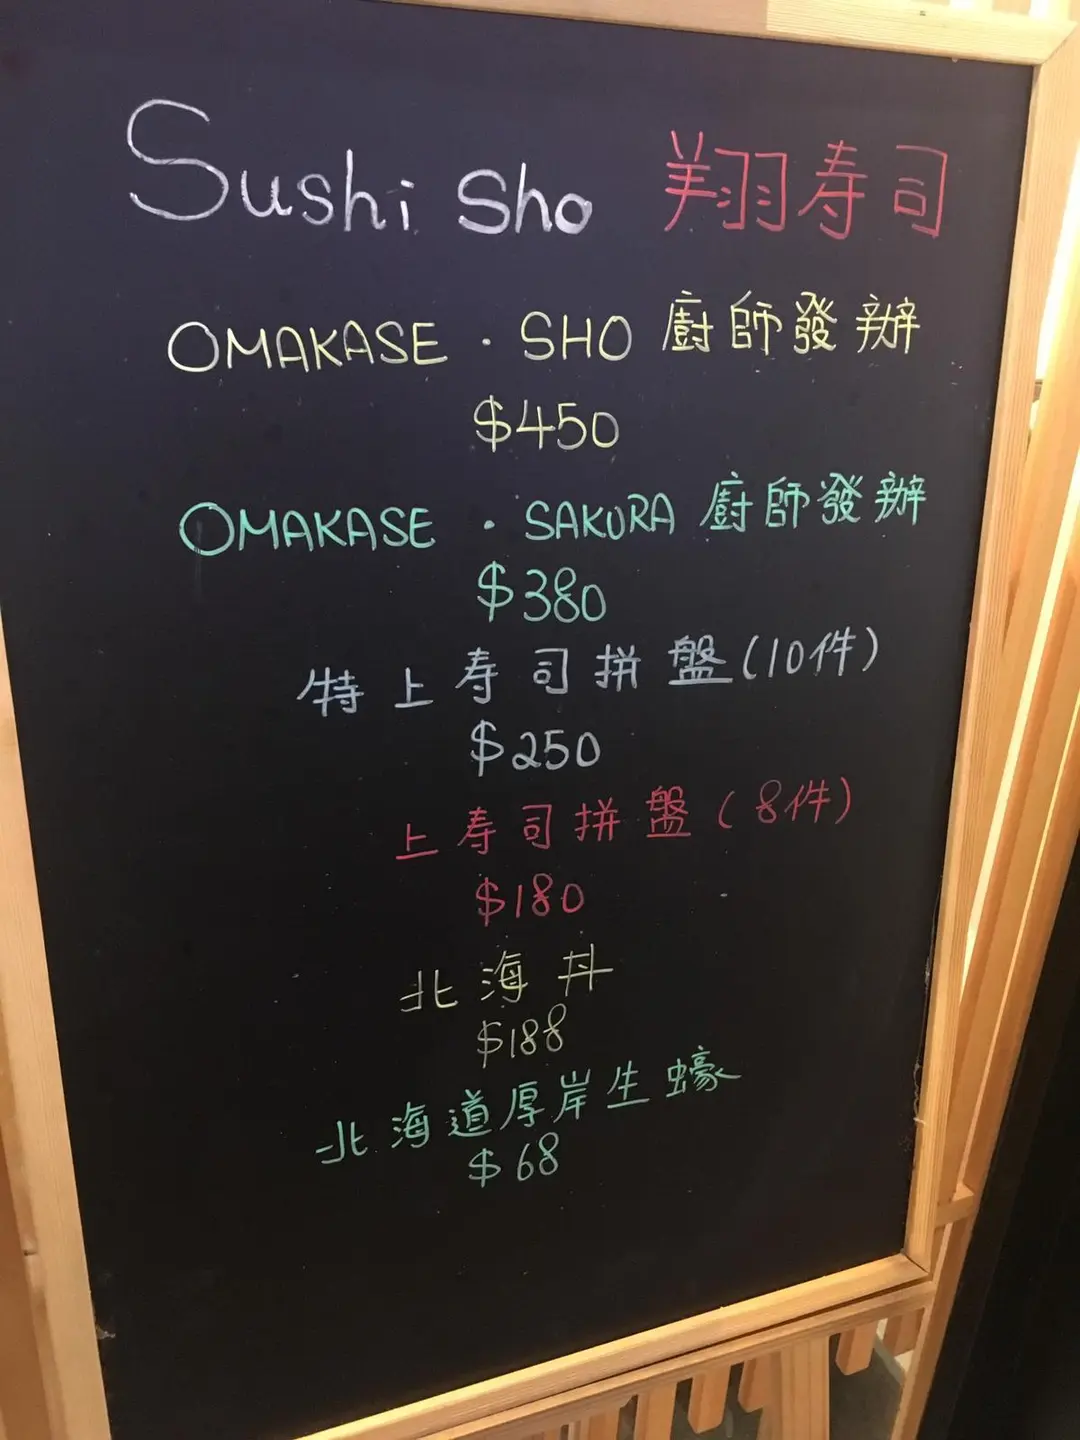 Sushi Sho 翔寿司
OMAKASE · SHO 廚師發辦
$450
OMAKASE · SAKURA 廚師發辦
$380
特上寿司拼盤(10件)
$250
上寿司拼盤(8件)
$180
北海丼
$188
北海道厚岸生蠔
$68